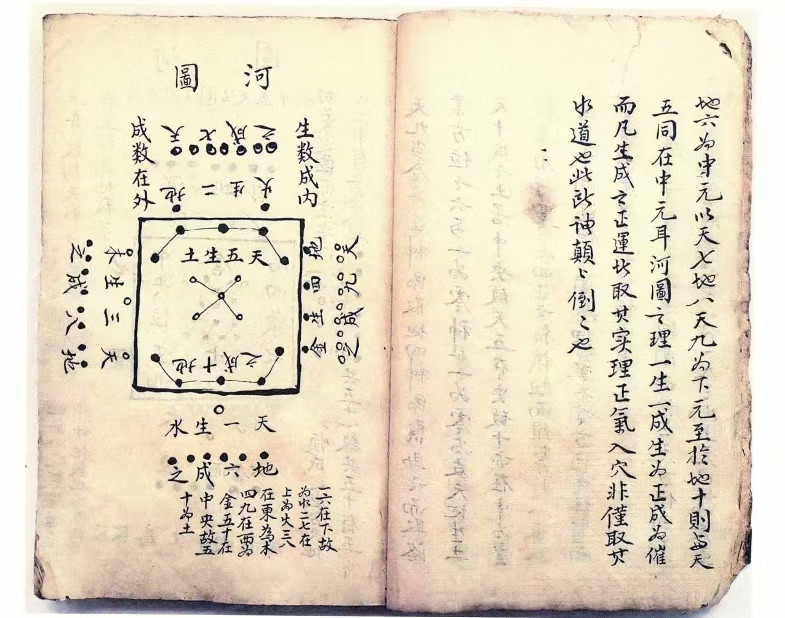 地六為中元以天七地八天九為下元至於地十則与天
五同在中元耳河圖之理一生一成生為正成為催
而凡生成之正運皆取其實理正氣入穴非僅取其
水道也此所神顛々倒々也
河圖
生数成内
成数在外
天七成之
地二生火
天五生土
地十成之
天九成之
地四生金
天三生木
地八成之
天一生水
地六成之
一六在下故
為水二七在
上為火三八
在東為木
四九在西為
金五十在
中央故五
十為土